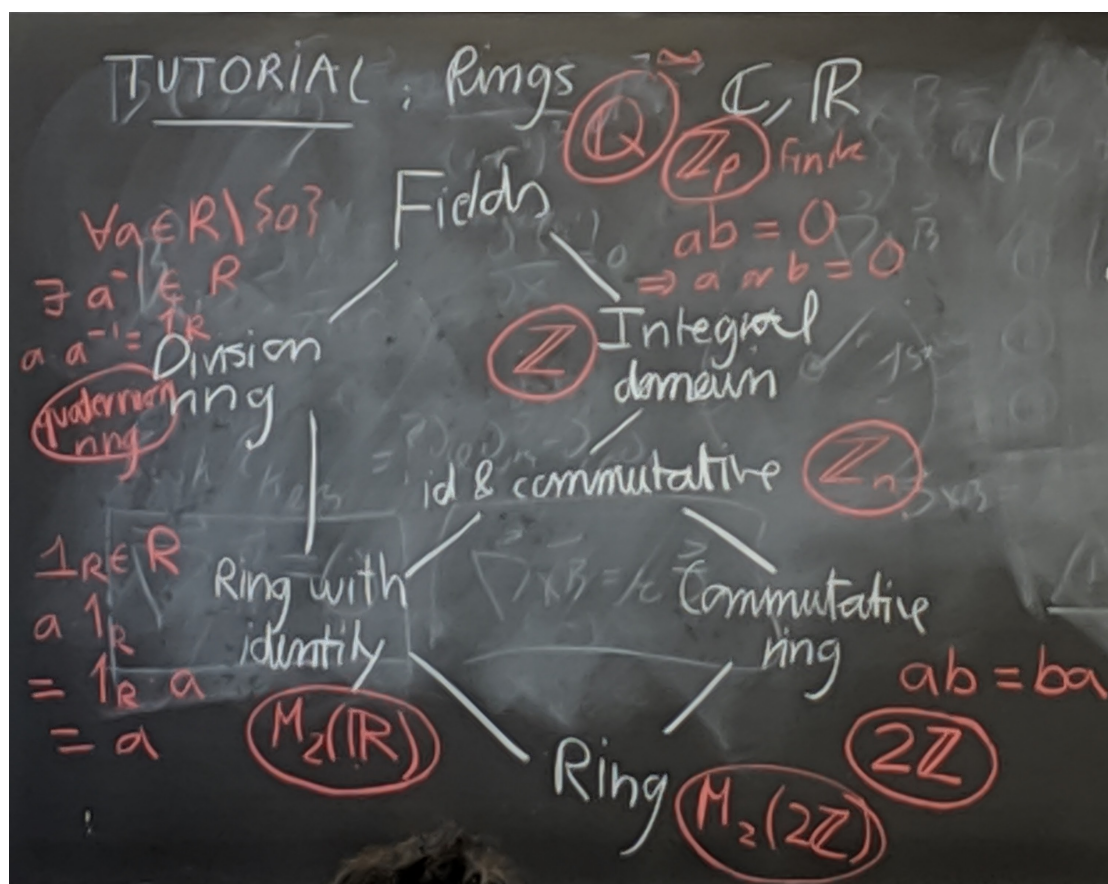 TUTORIAL : Rings
∞
ℚ
ℂ, ℝ
ℤₚ finite
Fields
∀a∈R\{0}
∃ a⁻¹ ∈ R
a a⁻¹ = 1_R
ab = 0
⇒ a or b = 0
Division
ring
quaternion
ring
ℤ
Integral
domain
id & commutative
ℤₙ
1_R ∈ R
a 1_R
= 1_R a
= a
Ring with
identity
M₂(ℝ)
Commutative
ring
ab = ba
2ℤ
Ring
M₂(2ℤ)